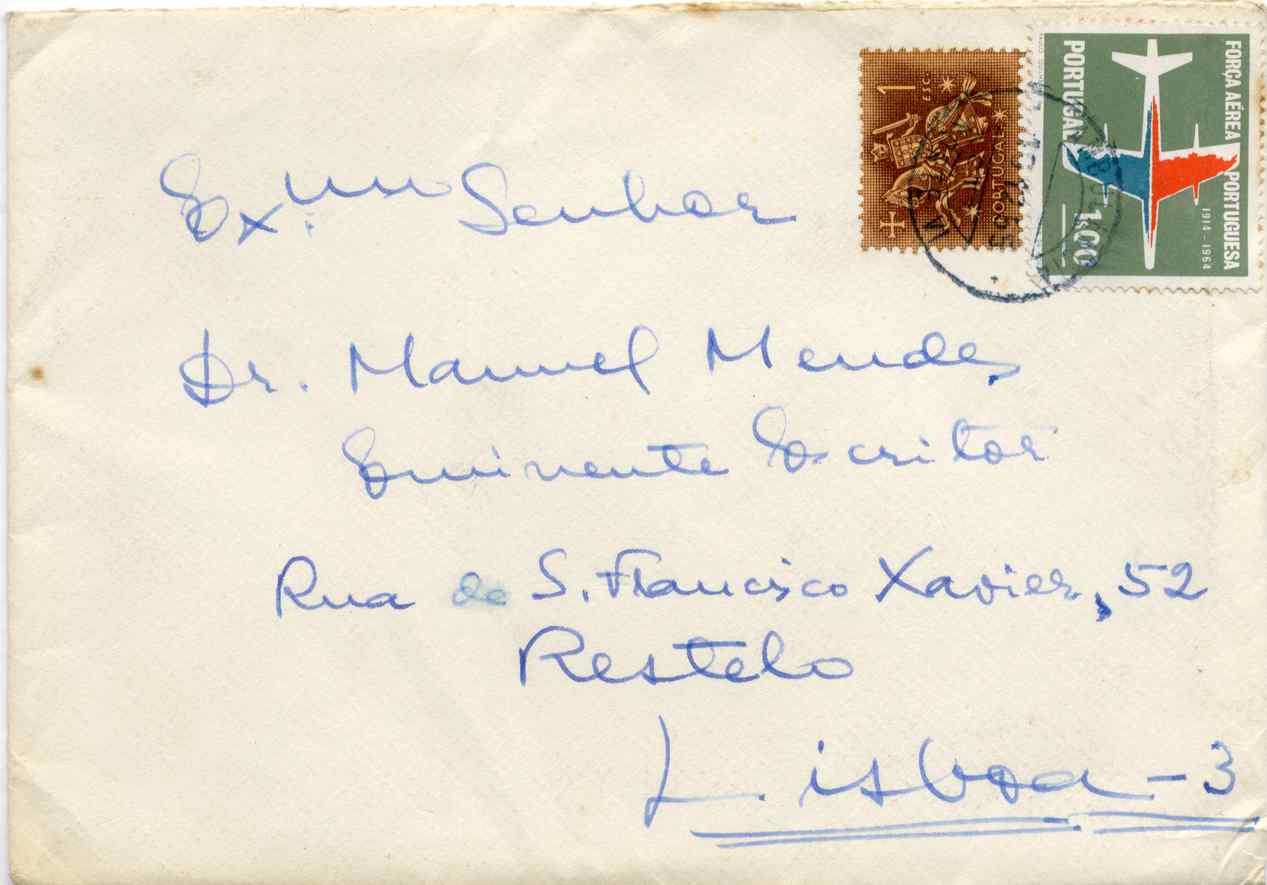 1 ESC.
PORTUGAL
FORÇA AÉREA PORTUGUESA
1914-1964
PORTUGAL
1.00
Ex.mo Senhor
Dr. Manuel Mendes,
Eminente Escritor
Rua de S. Francisco Xavier, 52
Restelo
Lisboa-3